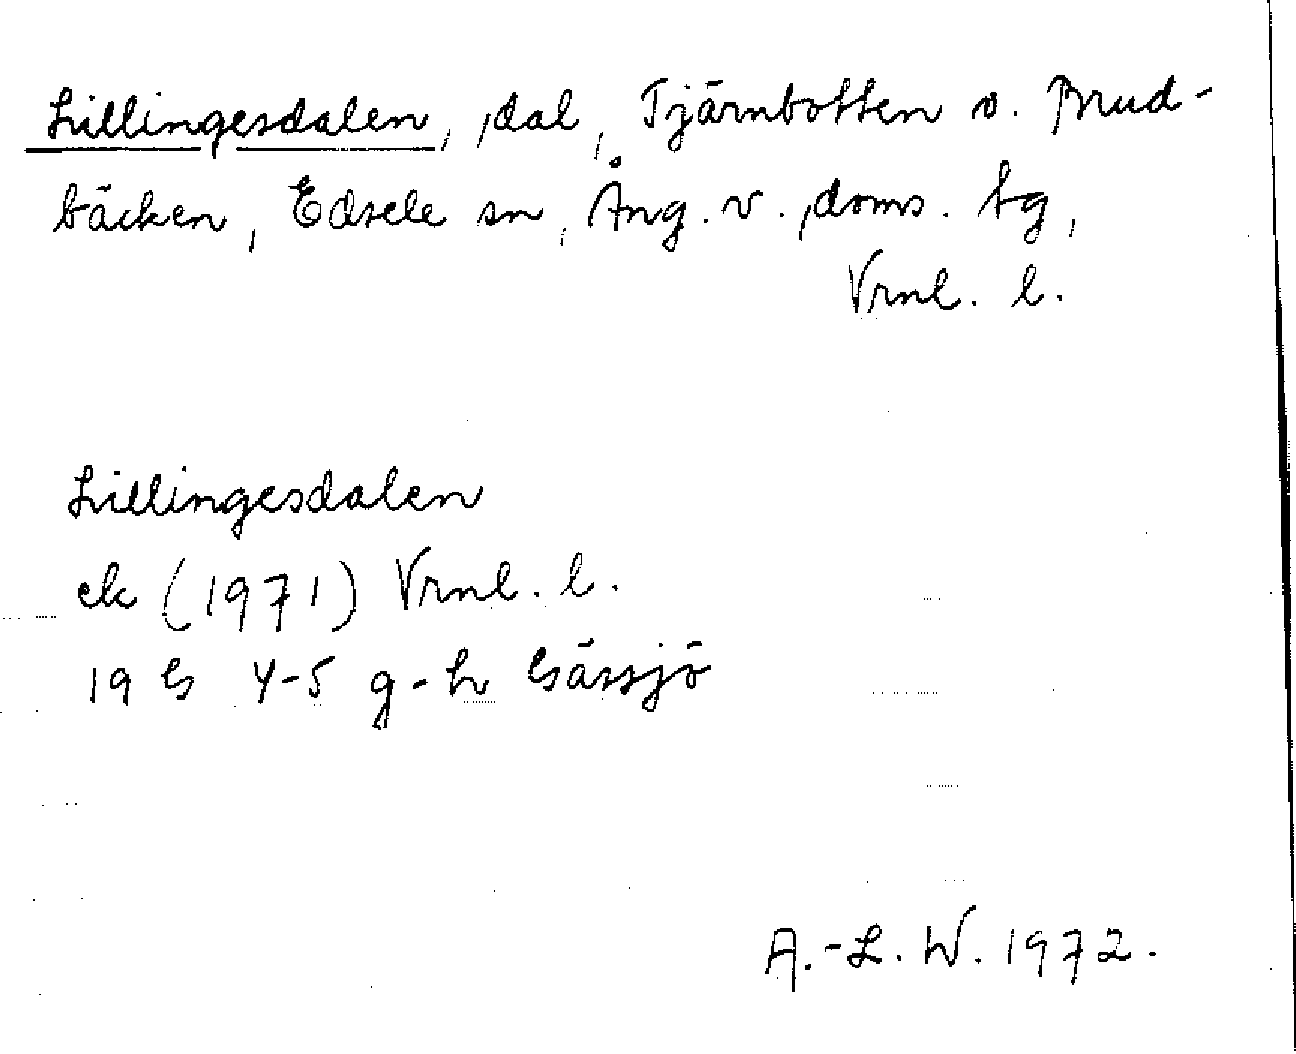 Lillingesdalen, dal, Tjärnbotten o. Brud-
bäcken, Edsele sn, Ång. v. doms. bg,
Vrnl. l.
Lillingesdalen
ek (1971) Vrnl. l.
19 G 4-5 g-h Gåssjö
A.-L. W. 1972.